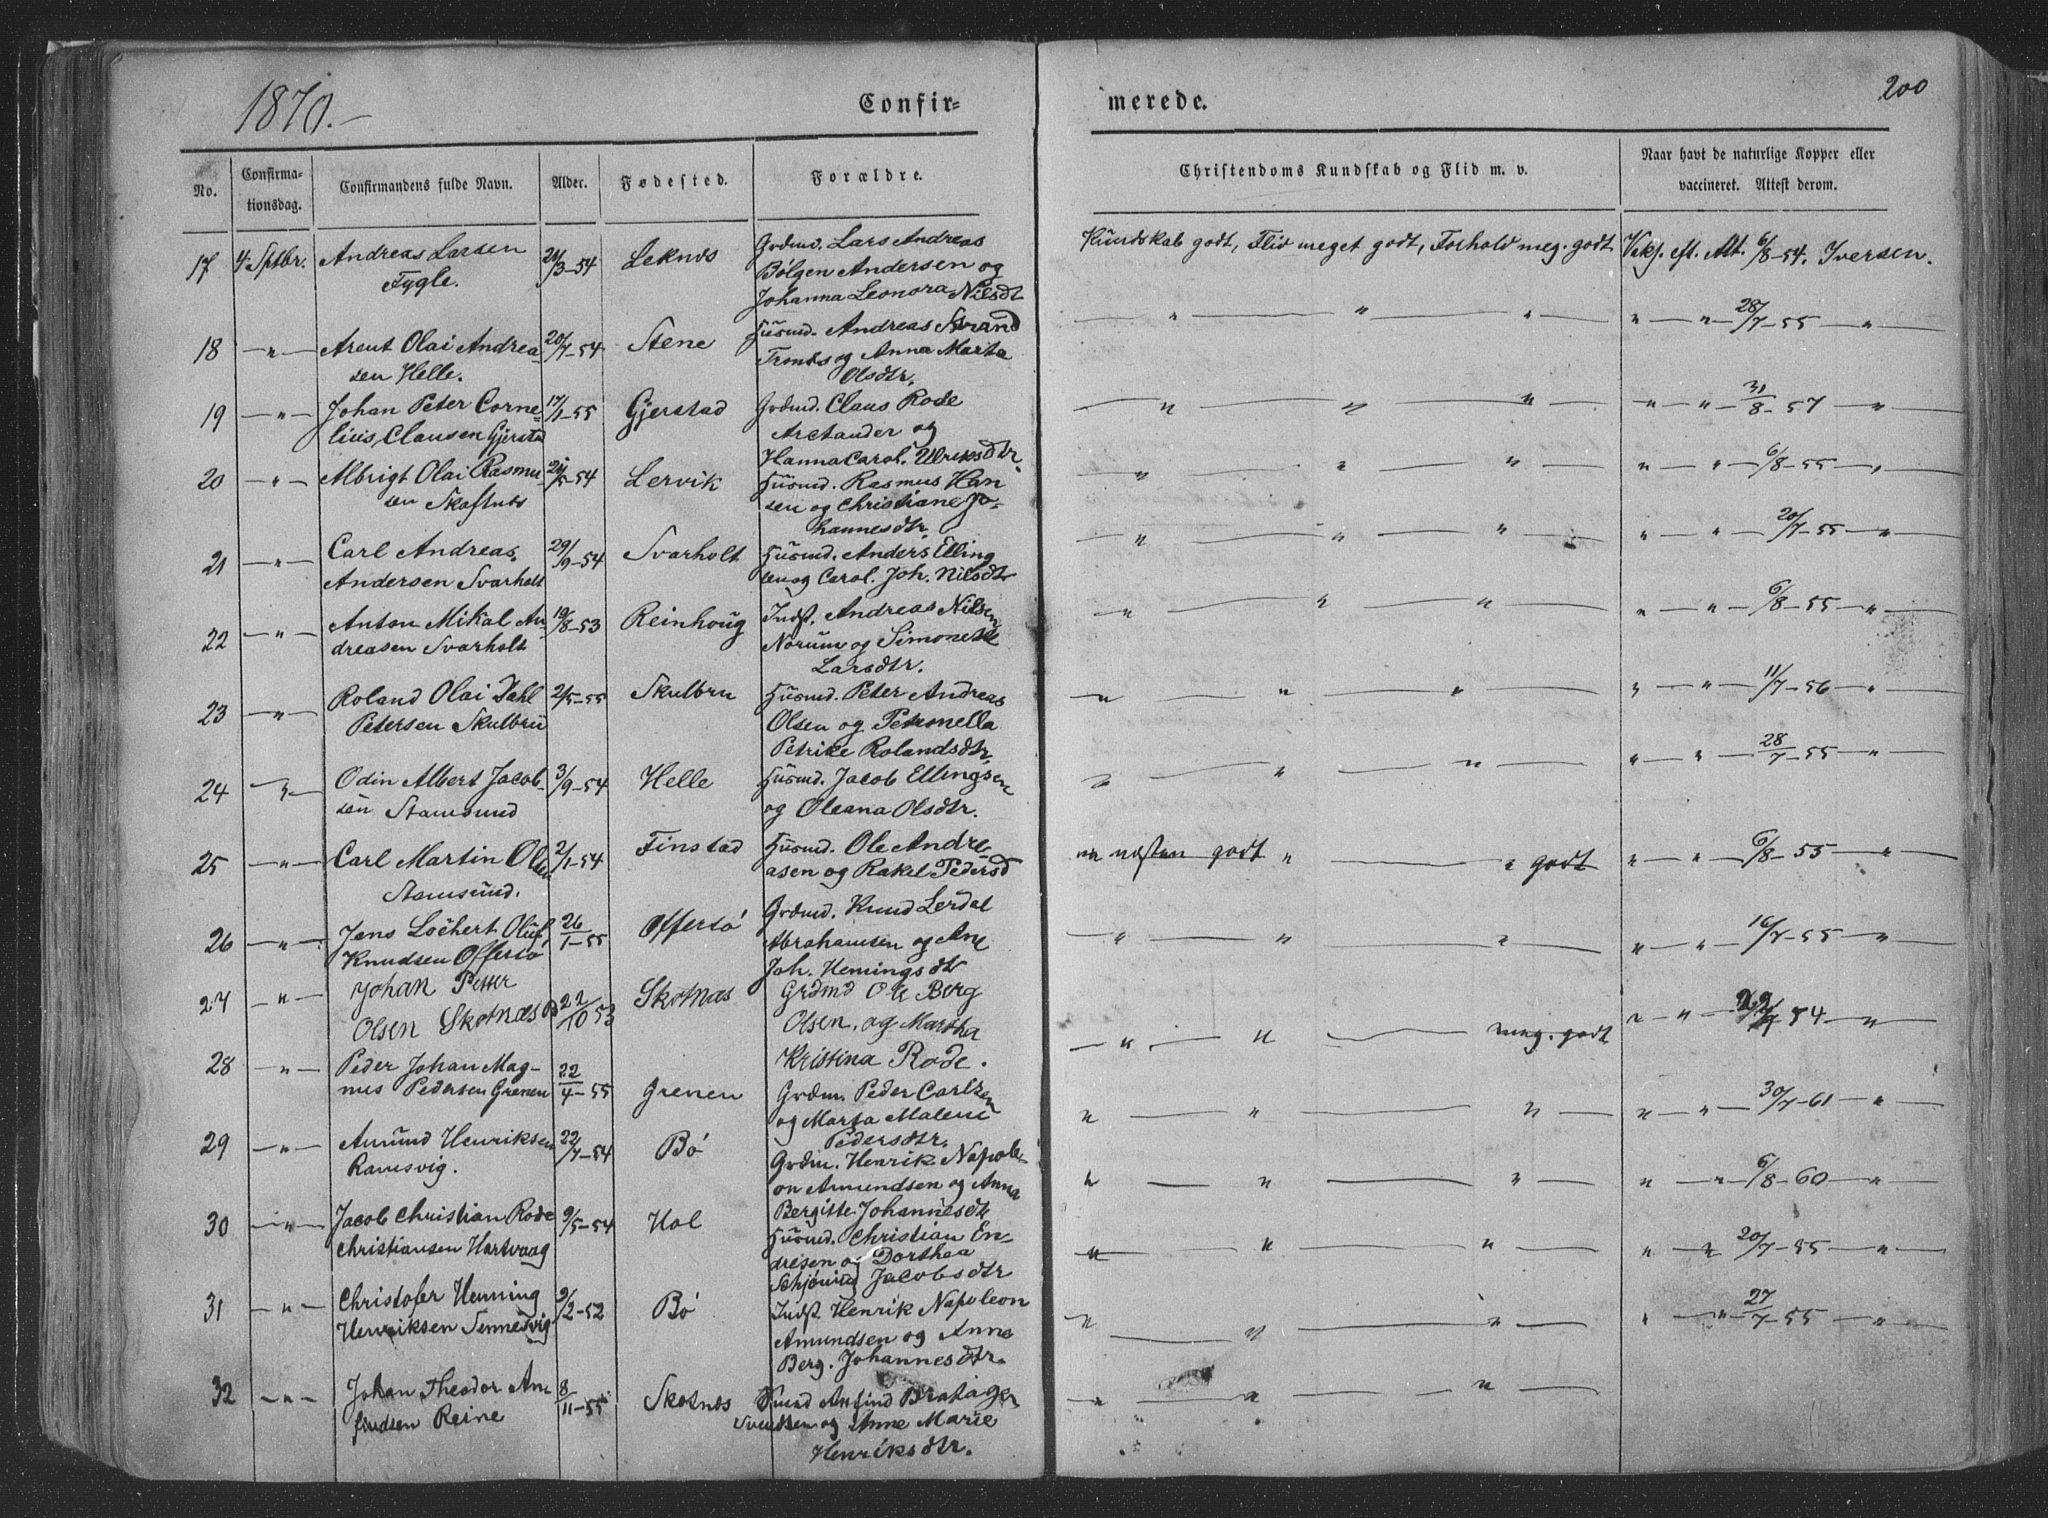 1870.-
Confir=
merede.
200
No.
Confirma-
tionsdag.
Confirmandens fulde Navn.
Alder.
Fødested.
Forældre.
Christendoms Kundskab og Flid m. v.
Naar havt de naturlige Kopper eller
vaccineret. Attest derom.
17 4 Sptbr. Andreas Larsen 21/3-54 Leknæs Grdmd. Lars Andreas Kundskab godt, Flid meget godt, Forhold meg. godt Vakz. eft. Att. 6/8-54. Iversen.
Fygle. Bølgen Andersen og
Johanna Leonora Nilsdt
18 —"— Arent Olai Andrea- 20/7-54 Stene Husmd. Andreas Strand — " — " — " — " — " — 28/7-55 — "
sen Helle. Tronds og Anna Marta
Olsdtr.
19 —"— Johan Peter Corne- 17/1-55 Gjerstad Grdmd. Claus Rode — " — " — " — " — " — 31/8-57 — "
lius Clausen Gjerstd Arctander og
Hanna Carol. Ulriksdtr.
20 —"— Albrigt Olai Rasmu 21/5-54 Lervik Husmd. Rasmus Han — " — " — " — " — " — 6/8-55 — "
sen Skaftnæs sen og Christiane Jo-
hannesdtr.
21 —"— Carl Andreas 29/9-54 Svarholt Husmd. Anders Elling — " — " — " — " — " — 20/7-55 — "
Andersen Svarholt sen og Carol. Joh. Nilsdtr
22 —"— Anton Mikal An 19/8-53 Reinhoug Indst. Andreas Nilsen — " — " — " — " — " — 6/8-55 — "
dreasen Svarholt Norum og Simonette
Larsdtr.
23 —"— Roland Olai Dahl 2/5-55 Skulbru Husmd. Peter Andreas — " — " — " — " — " — 11/7-56 — "
Petersen Skulbru Olsen og Petronella
Petrike Rolandsdtr.
24 —"— Odin Albert Jacob- 3/9-54 Helle Husmd. Jacob Ellingsen — " — " — " — " — " — 28/7-55 — "
sen Stamsund og Oleana Olsdtr.
25 —"— Carl Martin Olsen 2/1-54 Finstad Husmd. Ole Andre- næsten godt " — " godt " — " — 6/8-55 — "
Stamsund. asen og Rakel Pedersd
26 —"— Jens Lochert Oluf 26/1-55 Offersø Grdmd. Knud Lerdal — " — " — " — " — " — 16/7-55 — "
Knudsen Offersø Abrahamsen og Ane
Joh. Hemingsdtr
27 —"— Johan Petter Skotnæs Grdmd Ole Berg
Olsen Skotnæs 22/10 53 Olsen, og Martha — " — " — meg. godt " — " — 54 — "
Kristina Rode.
28 —"— Peder Johan Mag-
nus Pedersen Grenen 22/4-55 Grenen Grdm. Peder Carlsen — " — " — " — " — " — 30/7-61 — "
og Marta Malene
Pedersdtr.
29 —"— Amund Henriksen 22/7-54 Bø Grdm. Henrik Napole- — " — " — " — " — " — 6/8-60 — "
Ramsvig. on Amundsen og Anna
Bergitte Johannesdtr
30 —"— Jacob Christian Rode 9/5-54 Hol Husmd. Christian En- — " — " — " — " — " — 20/7-55 — "
Christiansen Hartvaag dresen og Dorthea
Schjøning Jacobsdtr
31 —"— Christofer Henning 9/2-52 Bø Indst Henrik Napoleon — " — " — " — " — " — 27/7-55 — "
Henriksen Sennesvig Amundsen og Anne
Berg. Johannesdtr.
32 —"— Johan Theodor An- 8/11-55 Skotnæs Husmd Anfind Bratager — " — " — "
findsen Reine Svendsen og Anne Marie
Henriksdtr.